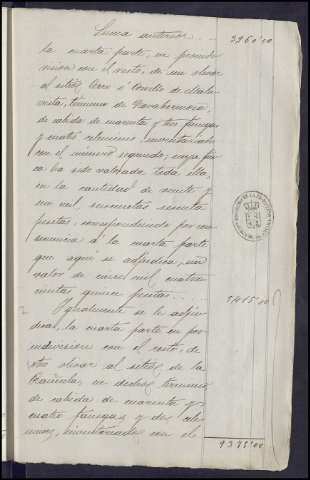 Suma anterior . . . 3960'00
la cuarta parte, en proindi-
vision con el resto, de un olivar
al sitio, Cerro ó Cortijo de Mala-
vista, término de Navahermosa,
de cabida de cuarenta y tres fanegas
y cuatro celemines, inventariado
con el número segundo, cuya fin-
ca ha sido valorada toda ella,
en la cantidad de veinte y
un mil, seiscientas sesenta
pesetas, correspondiendo por con-
secuencia á la cuarta parte
que aquí se adjudica, un
valor de cinco mil cuatro-
cientas quince pesetas. . . 5,415'00
Igualmente se le adju-
dica, la cuarta parte en pro-
indivision con el resto, de
otro olivar al sitio, de la
en dicho término
de cabida de cuarenta y
cuatro fanegas y dos cele-
mines, inventariado con el
9375'00